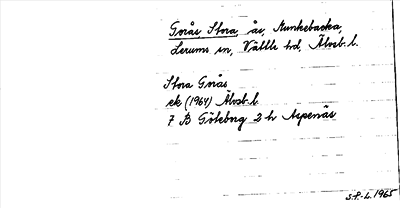 Gorås Stora ås, Munkebacka,
Lerums sn, Vättle hd, Älvsb. l.
Stora Gorås
ek (1964) Älvsb. l.
7 B Göteborg 2 h Aspenäs
S.F.-L. 1965